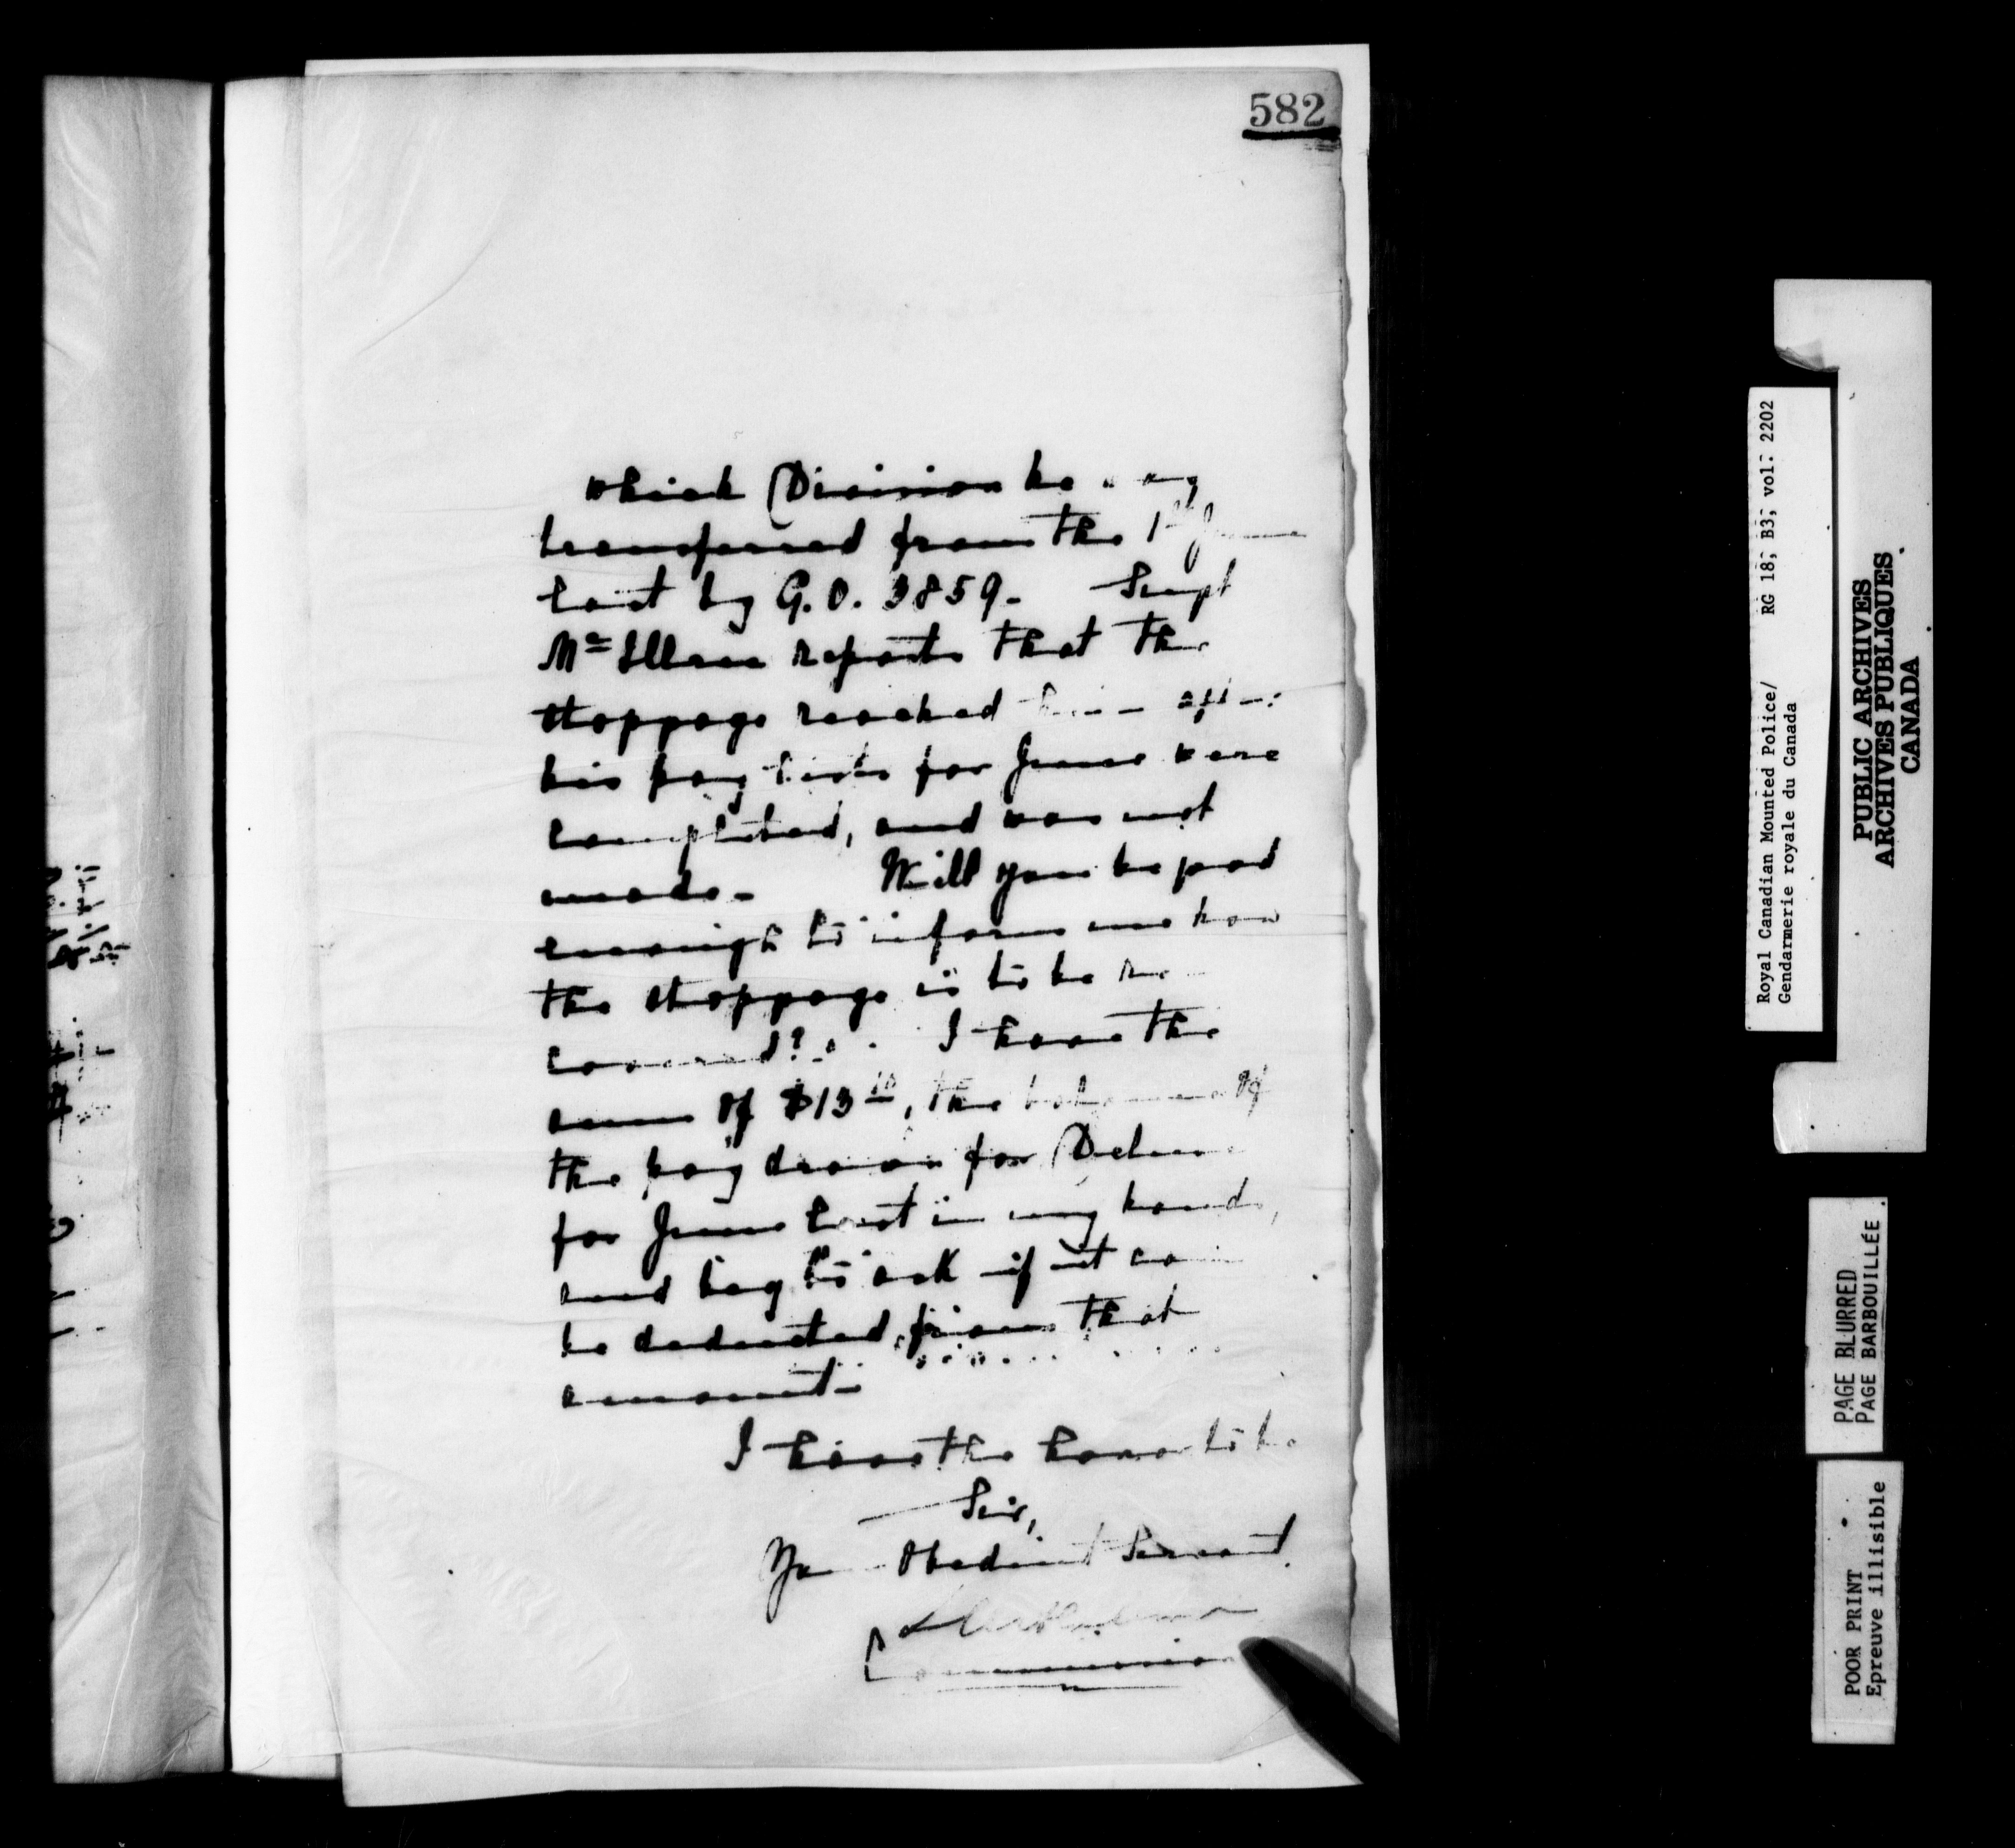 582
which Division he was
transferred from the 1st June
last by G.O. 3859. Supt
Mc Illree reports that the
stoppage reached him after
his pay lists for June were
completed, and was not
made. Will you be good
enough to inform me how
the stoppage is to be re
covered? I have the
sum of $13 10, the balance of
the pay drawn for
for June last in my hands,
and beg to ask if it can
be deducted from that
amount.
I have the honor to be
Sir,
Your Obedient Servant.
Commissioner
Royal Canadian Mounted Police/ RG 18; B3; vol. 2202
Gendarmerie royale du Canada
PUBLIC ARCHIVES
ARCHIVES PUBLIQUES
CANADA
PAGE BLURRED
PAGE BARBOUILLÉE
POOR PRINT
Epreuve illisible